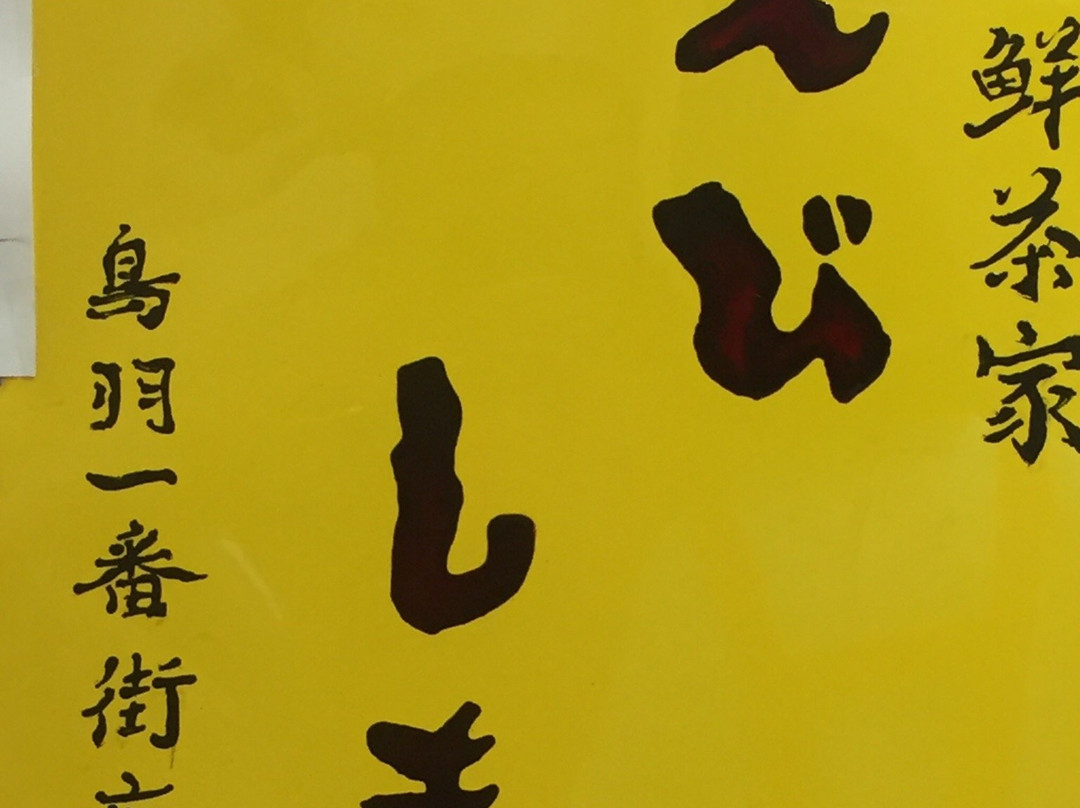 鮮茶家
び
し
鳥羽一番街